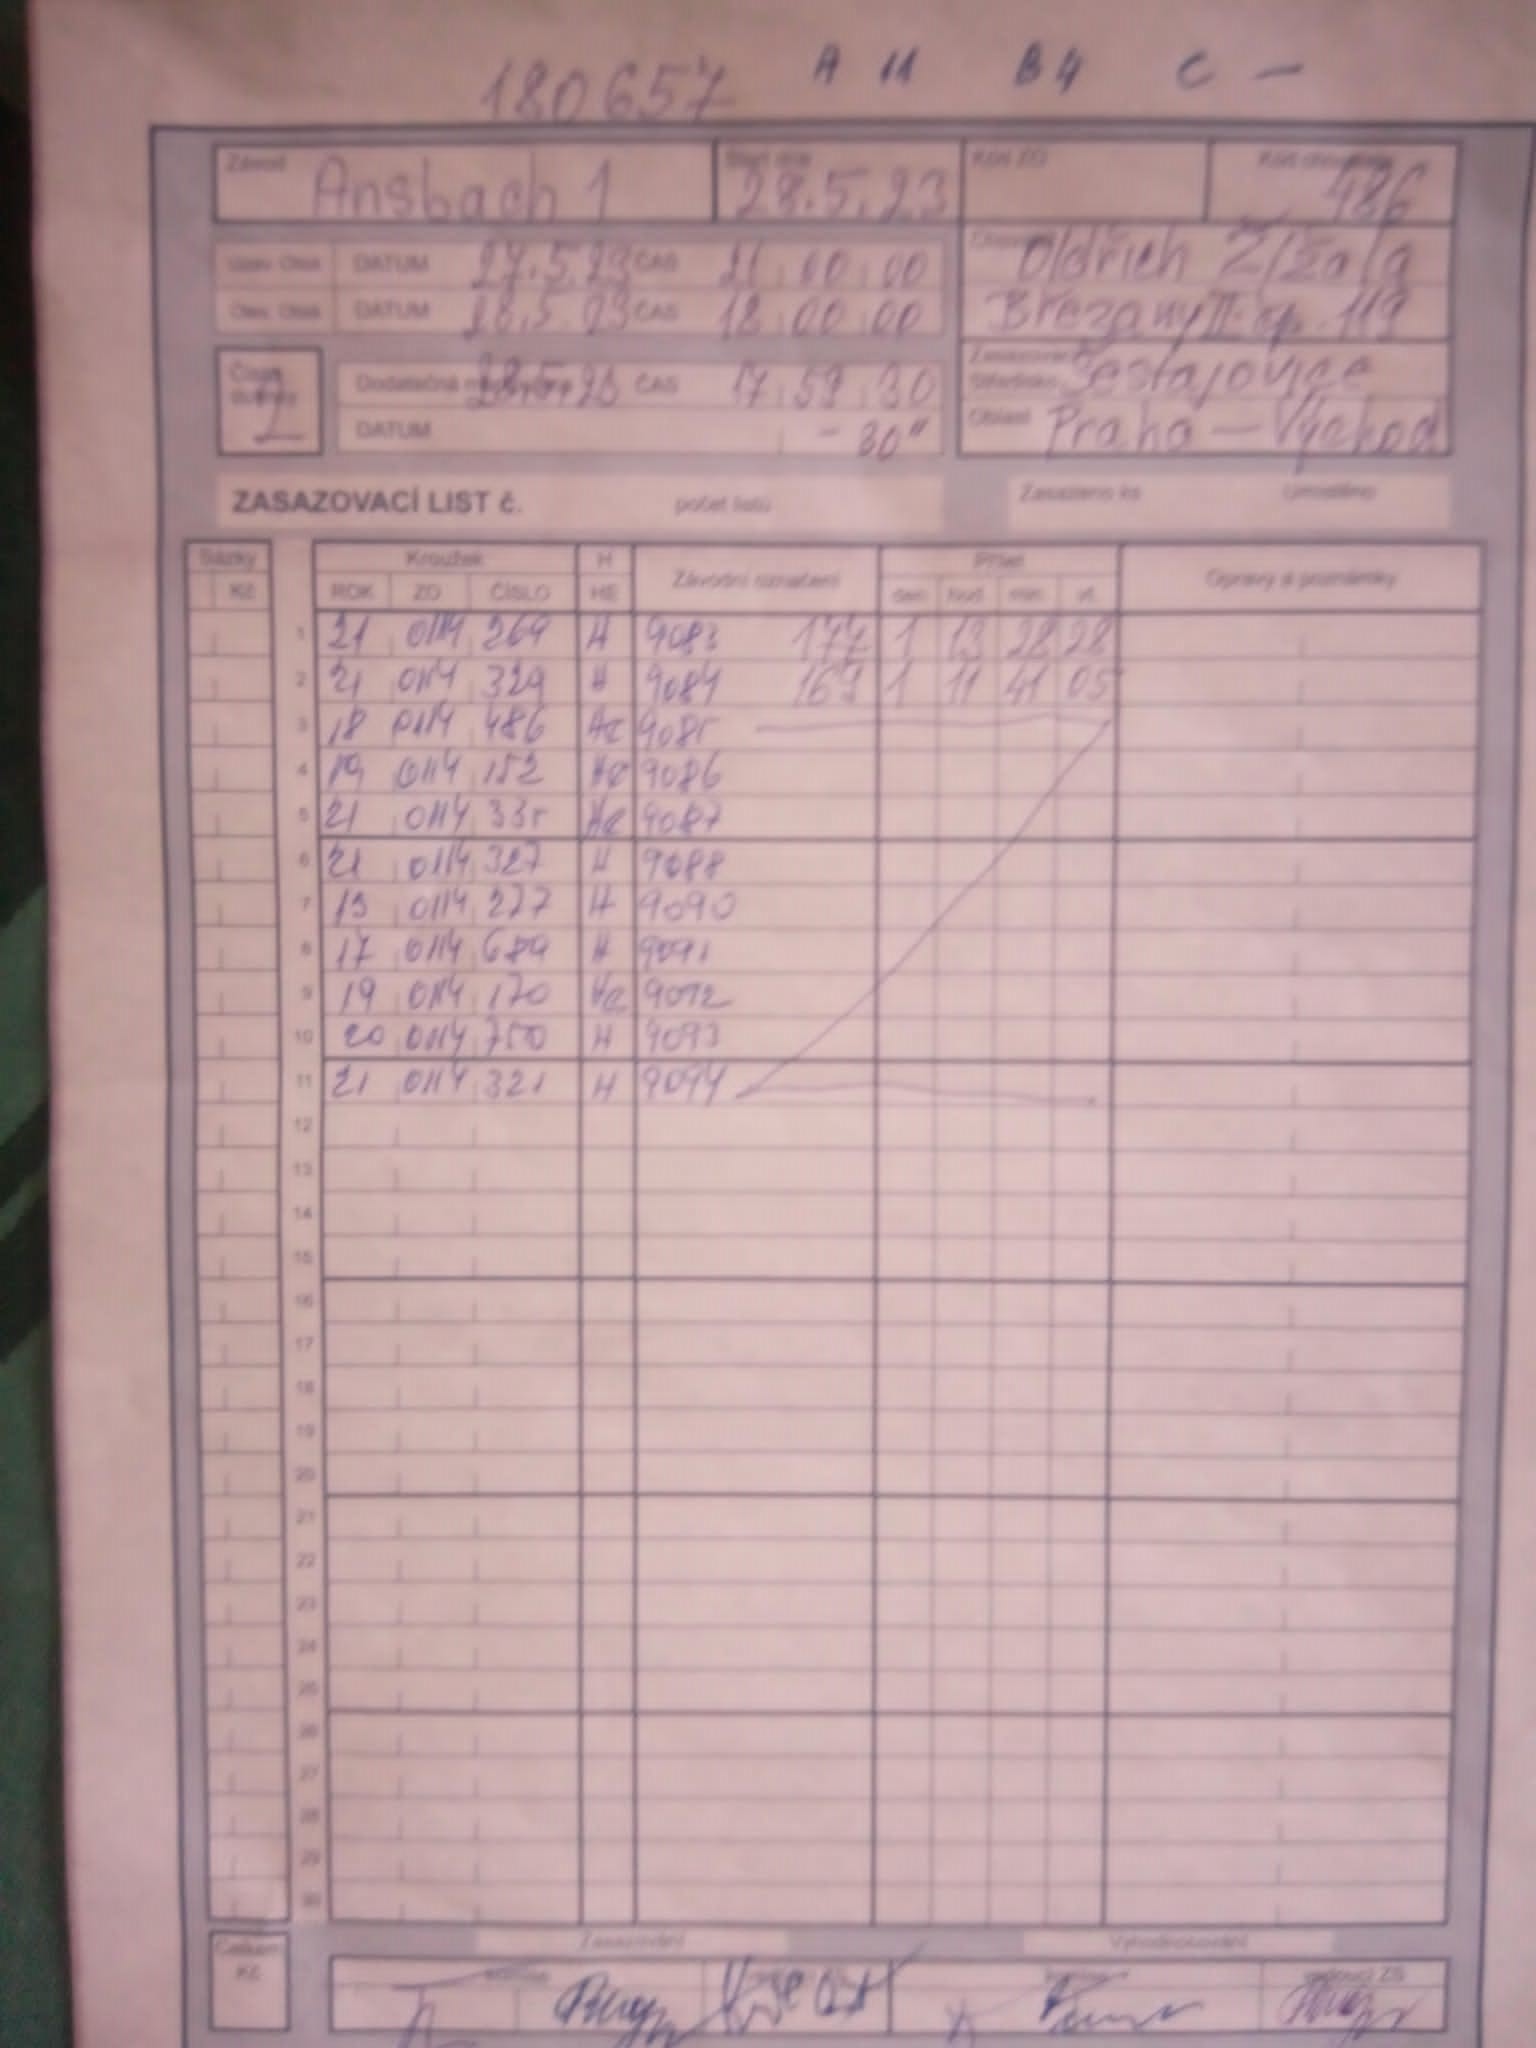 180657 A 11 B 4 C —
Závod Ansbach 1 28.5.23 Kód ZO 486
DATUM 27.5.23 ČAS 21:00:00 Oldřich Žížala
DATUM 28.5.23 ČAS 18:00:00 Březany II čp. 119
28.5.23 ČAS 17:59:30 Šestajovice
DATUM - 30" Oblast Praha — Východ
ZASAZOVACÍ LIST č. počet listů Zasazeno ks Umístěno
Sázky Kroužek H Závodní označení Přílet Opravy a poznámky
Kč ROK ZO ČÍSLO HE den hod min vt.
1 21 0114 269 H 9083 177 1 13 28 28
2 21 0114 329 H 9084 169 1 11 41 05
3 18 0114 486 He 9085
4 19 0114 152 He 9086
5 21 0114 335 He 9087
6 21 0114 327 H 9088
7 0114 277 H 9090
8 17 0114 H 9091
9 19 0114 170 He 9092
10 20 0114 750 H 9093
11 21 0114 321 H 9094
12
13
14
15
16
17
18
19
20
21
22
23
24
25
26
27
28
29
30
Celkem Zasazování Vyhodnocování
Kč